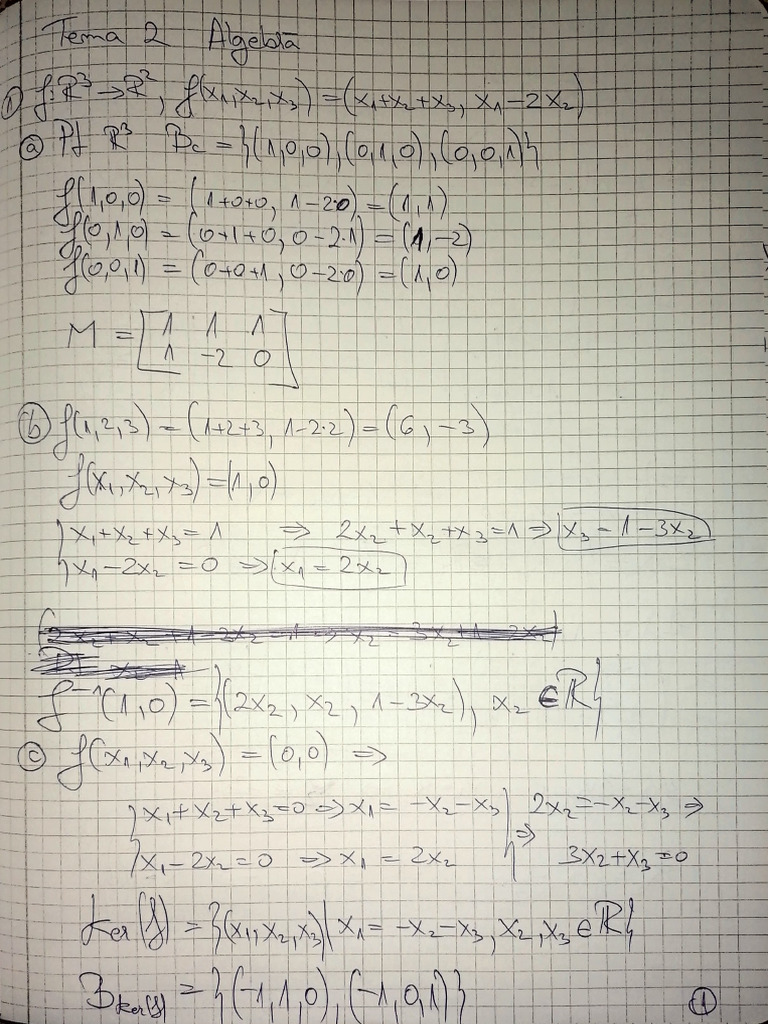 Tema 2 Algebră
① f:ℝ³→ℝ², f(x₁,x₂,x₃) = (x₁+x₂+x₃, x₁−2x₂)
ⓐ Pt ℝ³ Bc = {(1,0,0),(0,1,0),(0,0,1)}
f(1,0,0) = (1+0+0, 1−2·0) = (1,1)
f(0,1,0) = (0+1+0, 0−2·1) = (1,−2)
f(0,0,1) = (0+0+1, 0−2·0) = (1,0)
M = [1 1 1
1 −2 0]
ⓑ f(1,2,3) = (1+2+3, 1−2·2) = (6,−3)
f(x₁,x₂,x₃) = (1,0)
{x₁+x₂+x₃=1 ⇒ 2x₂+x₂+x₃=1 ⇒ x₃=1−3x₂
x₁−2x₂=0 ⇒ x₁=2x₂
f⁻¹(1,0) = {(2x₂, x₂, 1−3x₂), x₂∈ℝ}
ⓒ f(x₁,x₂,x₃) = (0,0) ⇒
{x₁+x₂+x₃=0 ⇒ x₁=−x₂−x₃ } ⇒ 2x₂=−x₂−x₃ ⇒
x₁−2x₂=0 ⇒ x₁=2x₂ 3x₂+x₃=0
Ker(f) = {(x₁,x₂,x₃) | x₁=−x₂−x₃, x₂,x₃∈ℝ}
B_Ker(f) = {(−1,1,0),(−1,0,1)}
①